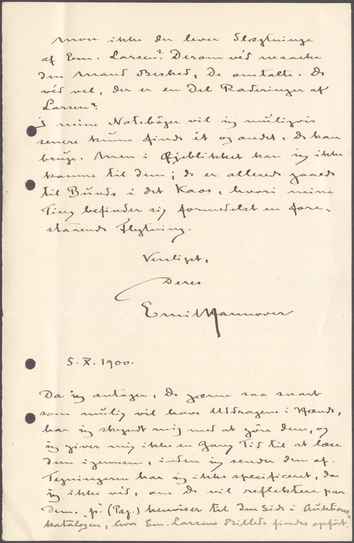 Mon ikke der lever Slægtninge
af Em. Larsen? Derom véd maaske
den Mand Besked, De omtalte. De
véd vel, der er en Del Raderinger af
Larsen?
I mine Notebøger vil jeg muligvis
senere kunne finde ét og andet, De kan
bruge. Men i Øjeblikket kan jeg ikke
komme til dem; de er allerede pakede
til Bunds i det Kaos, hvori mine
Ting befinder sig formedelst en fore-
staaende Flytning.
Venligst,
Deres
Emil Hannover
5. X. 1900.
Da jeg antager, De gerne saa snart
som mulig vil have Uddragene i Hænde,
har jeg skyndt mig med at gøre dem, og
jeg giver mig ikke en Gang Tid til at læse
dem igennem, inden jeg sender dem af.
Tegningerne har jeg ikke specificeret, da
jeg ikke véd, om De vil reflektere paa
dem. (Pag.) henviser til den Side i Auktions-
katalogen, hvor Em. Larsens Billeder findes opført.